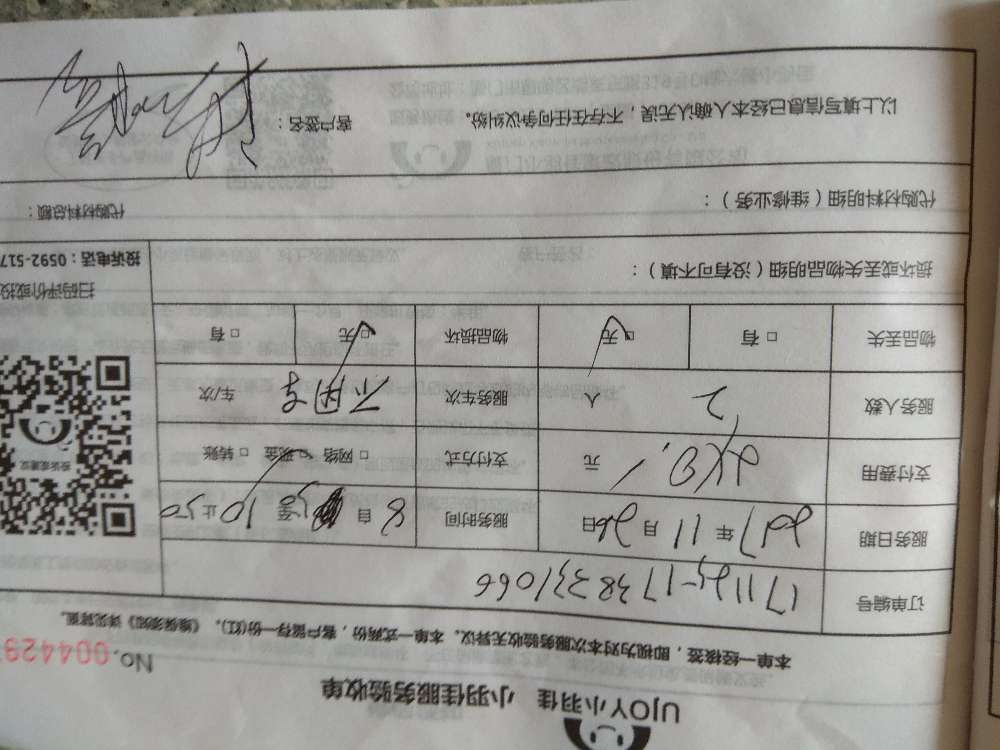 UJOY小羽佳 小羽佳服务验收单
No.004429
本单一经核签，即视为对本次服务验收无异议。本单一式两份，客户留存一份(红)。《售后须知》详见背面。
订单编号 171125-1738331066
服务日期 2017年11月26日 服务时间 8自 30至 10止50
支付费用 280. 元 支付方式 □网络 □现金 □转账
服务人数 2 人 服务车次 不用车 车/次
物品丢失 □有 □无 物品损坏 □无 □有
损坏或丢失物品明细（没有可不填）：
扫码评价或投
投诉电话：0592-517
代购材料明细（维修业务）： 代购材料总额：
以上填写信息已经本人确认无误，不存在任何争议纠纷。 客户签名：